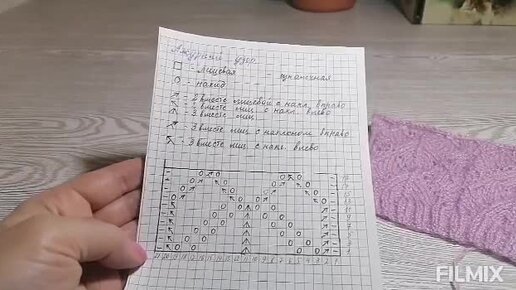 Ажурный узор
□ - лицевая - изнаночная
О - накид
- 2 вместе лицевой с накл. вправо
- 2 вместе лиц. с накл. влево
- 3 вместе лиц.
- 3 вместе лиц с наклоном вправо
- 3 вместе лиц. с накл. влево
FILMIX